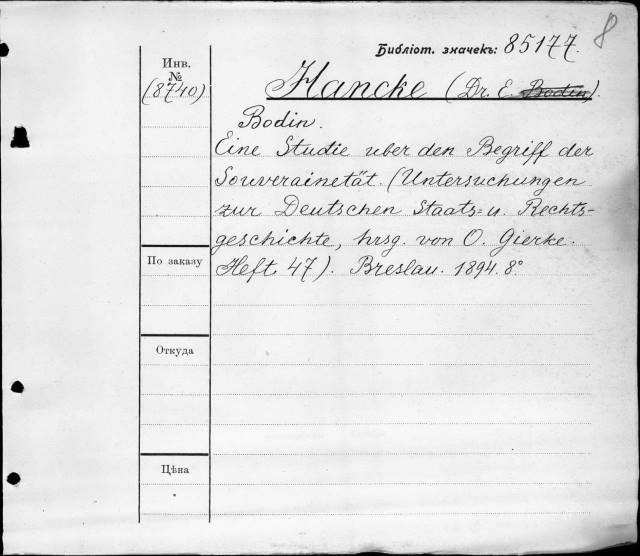 8
Библіот. значекъ: 85177.
Инв.
№
(8740)
Hancke (Dr. E. Bodin).
Bodin.
Eine Studie uber den Begriff der
Souverainetät. (Untersuchungen
zur Deutschen Staats= u. Rechts-
geschichte, hrsg. von O. Gierke.
Heft 47). Breslau. 1894. 8°
По заказу
Откуда
Цѣна